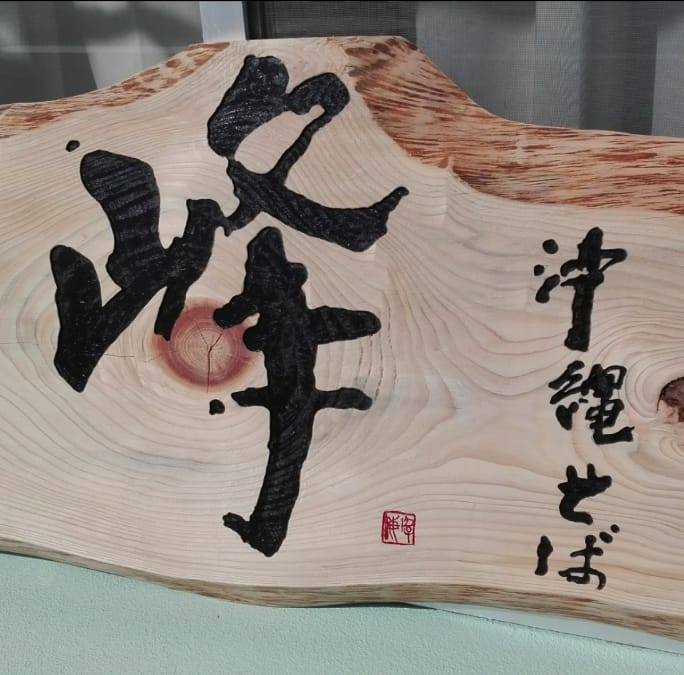 沖縄そば
峰